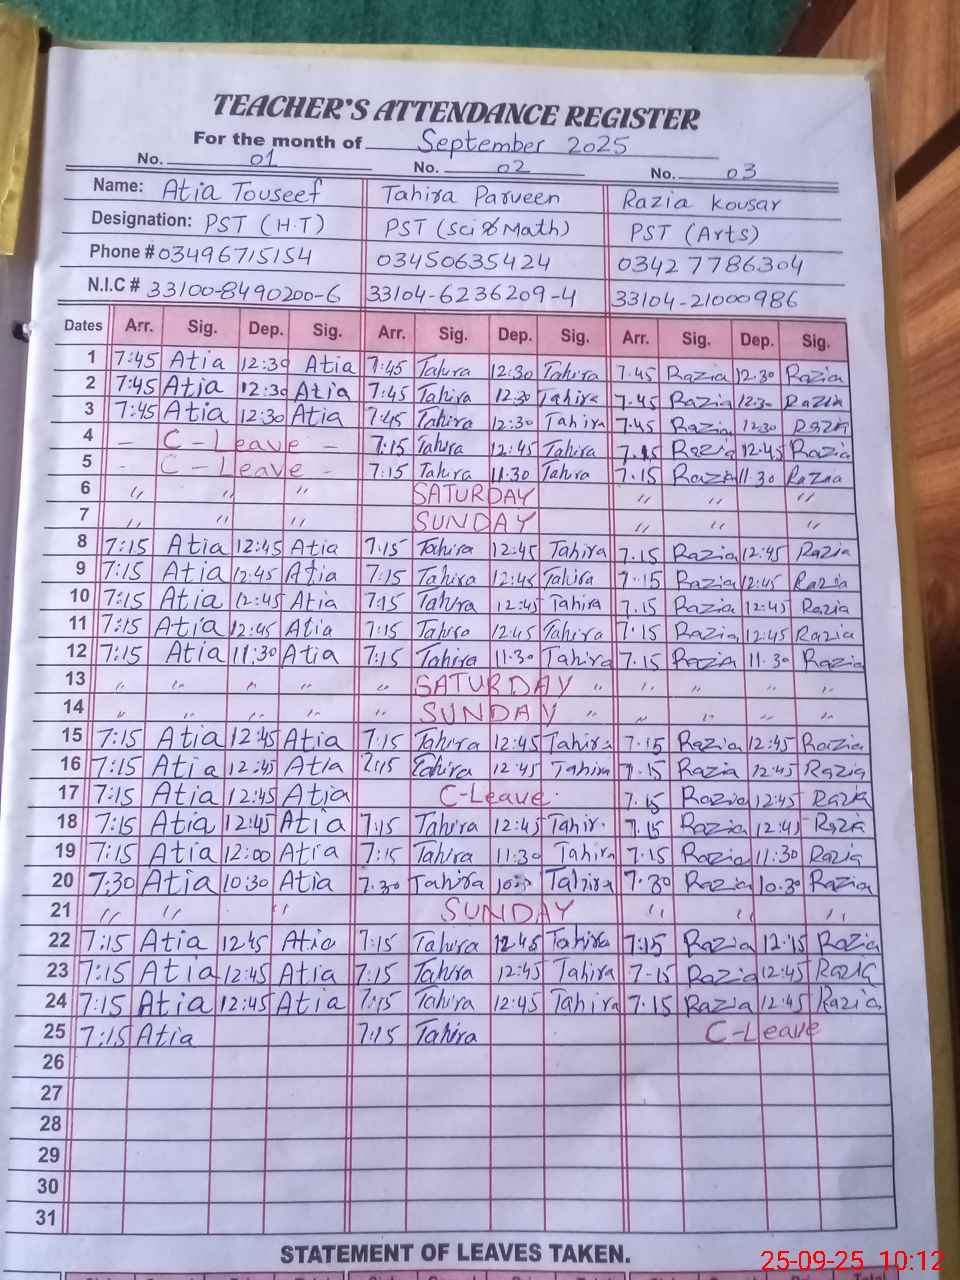 TEACHER'S ATTENDANCE REGISTER
For the month of September 2025
No. 01 No. 02 No. 03
Name: Atia Touseef Tahira Parveen Razia Kousar
Designation: PST (H.T) PST (Sci & Math) PST (Arts)
Phone # 03496715154 03450635424 03427786304
N.I.C # 33100-8490200-6 33104-6236209-4 33104-21000986
Dates Arr. Sig. Dep. Sig. Arr. Sig. Dep. Sig. Arr. Sig. Dep. Sig.
1 7:45 Atia 12:30 Atia 7:45 Tahira 12:30 Tahira 7.45 Razia 12.30 Razia
2 7:45 Atia 12:30 Atia 7:45 Tahira 12:30 Tahira 7.45 Razia 12:30 Razia
3 7:45 Atia 12:30 Atia 7:45 Tahira 12:30 Tahira 7.45 Razia 12:30 Razia
4 - C-Leave - 7:15 Tahira 12:45 Tahira 7.15 Razia 12.45 Razia
5 - C-Leave - 7:15 Tahira 11:30 Tahira 7.15 Razia 11.30 Razia
6 " " " SATURDAY " " "
7 " " " SUNDAY " " "
8 7:15 Atia 12:45 Atia 7:15 Tahira 12:45 Tahira 7.15 Razia 12:45 Razia
9 7:15 Atia 12:45 Atia 7:15 Tahira 12:45 Tahira 7.15 Razia 12:45 Razia
10 7:15 Atia 12:45 Atia 7:15 Tahira 12:45 Tahira 7.15 Razia 12:45 Razia
11 7:15 Atia 12:45 Atia 7:15 Tahira 12:45 Tahira 7.15 Razia 12:45 Razia
12 7:15 Atia 11:30 Atia 7:15 Tahira 11:30 Tahira 7.15 Razia 11.30 Razia
13 " " " " " SATURDAY " " " " "
14 " " " " " SUNDAY " " " " "
15 7:15 Atia 12:45 Atia 7:15 Tahira 12:45 Tahira 7.15 Razia 12:45 Razia
16 7:15 Atia 12:45 Atia 7:15 Tahira 12:45 Tahira 7.15 Razia 12:45 Razia
17 7:15 Atia 12:45 Atia C-Leave 7.15 Razia 12:45 Razia
18 7:15 Atia 12:45 Atia 7:15 Tahira 12:45 Tahir. 7.15 Razia 12:45 Razia
19 7:15 Atia 12:00 Atia 7:15 Tahira 11:30 Tahira 7.15 Razia 11.30 Razia
20 7:30 Atia 10:30 Atia 7.30 Tahira Tahira 7.30 Razia 10.30 Razia
21 " " " SUNDAY " " "
22 7:15 Atia 1245 Atia 7:15 Tahira 12:45 Tahira 7:15 Razia 12:15 Razia
23 7:15 Atia 12:45 Atia 7:15 Tahira 12:45 Tahira 7-15 Razia 12:45 Razia
24 7:15 Atia 12:45 Atia 7:15 Tahira 12:45 Tahira 7.15 Razia 12:45 Razia
25 7:15 Atia 7:15 Tahira C-Leave
26
27
28
29
30
31
STATEMENT OF LEAVES TAKEN.
25-09-25 10:12